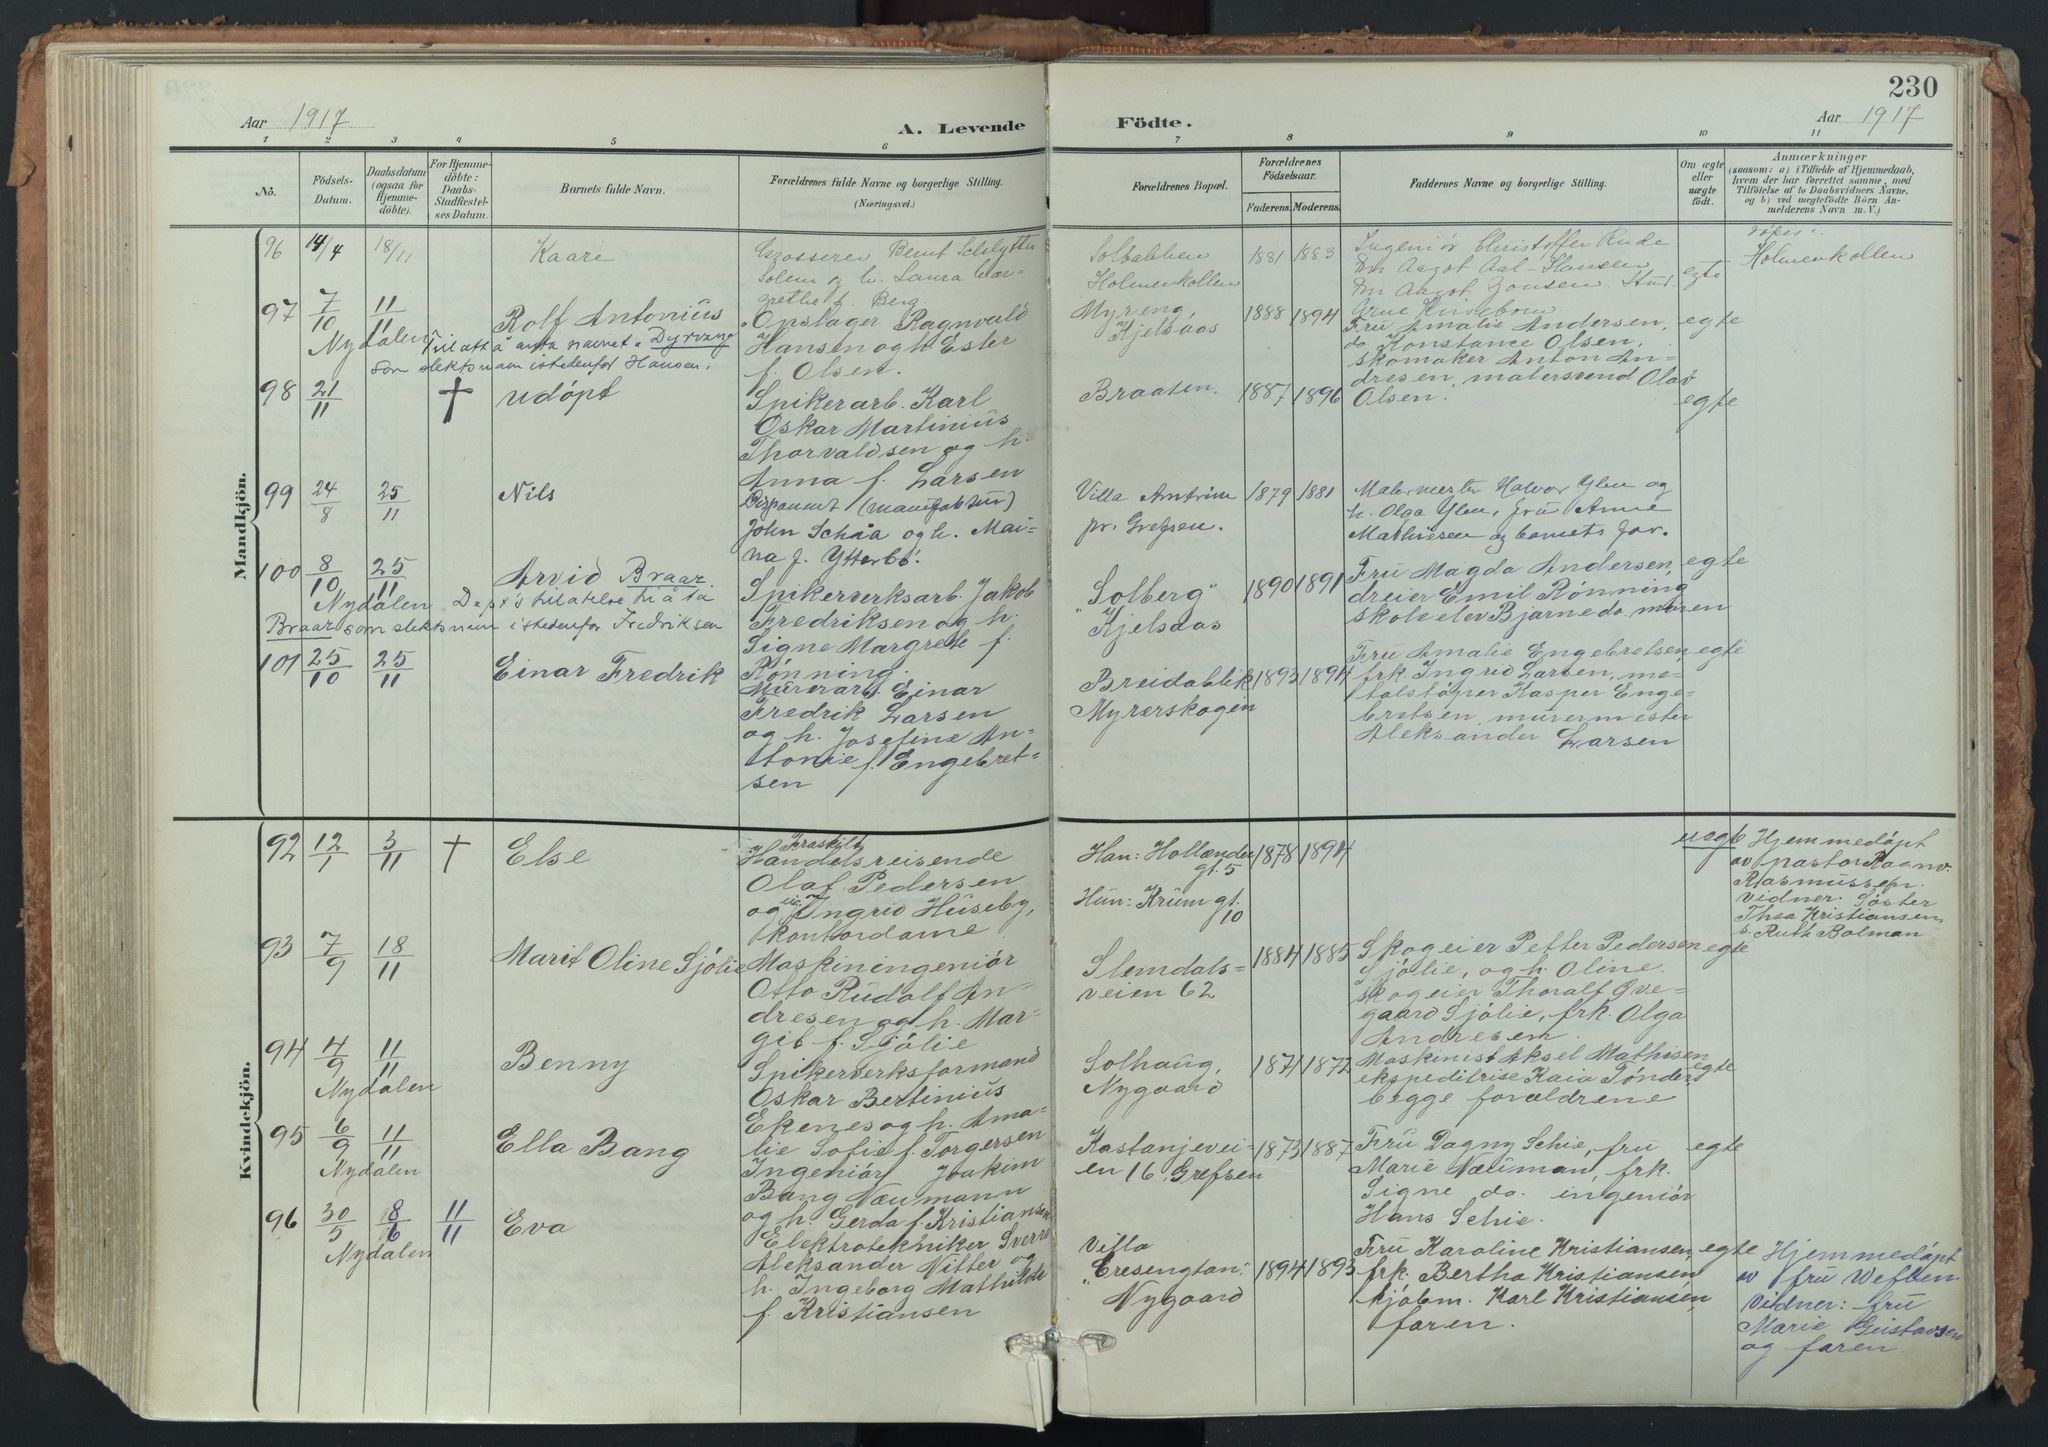 230
Aar 1917
A. Levende Födte.
Aar 1917
1 2 3 4 5 6 7 8 9 10 11
No.
Födsels-
Datum.
Daabsdatum
(ogsaa for
Hjemme-
döbte).
For Hjemme-
döbte:
Daabs-
Stadfæstel-
ses Datum.
Barnets fulde Navn.
Forældrenes fulde Navne og borgerlige Stilling.
(Næringsvei.)
Forældrenes Bopæl.
Forældrenes
Födselsaar.
Faderens. Moderens.
Faddernes Navne og borgerlige Stilling.
Om ægte
eller
uægte
födt.
Anmærkninger
(saasom: a) i Tilfælde af Hjemmedaab,
hvem der har forrettet samme, med
Tilföielse af to Daabsvidners Navne,
og b) ved uægtefödte Börn An-
melderens Navn m. V.)
Mandkjön.
96 14/4 18/11 Kaare
Grosserer Bernt
Solem og h. Laura Mar-
grethe f. Berg.
Solbakken
Holmenkollen
1881 1883
Ingeniör Christoffer Rude
Frk Aagot Aal-Hansen
Frk Aagot Jonsen. Stud.
egte
Holmenkollen
97 7/10 11/11 Rolf Antonius
Nydalen
Tillatt å anta navnet "Dyrvang"
som slektsnavn istedenfor Hansen.
Opslager Ragnvald
Hansen og h. Ester
f. Olsen.
Myreng,
Kjelsaas
1888 1894
Fru Amalie Andersen,
do. Konstance Olsen,
skomaker Anton An-
dresen, malersvend Olav
Olsen.
egte
98 21/11 † udöpt
Spikerarb. Karl
Oskar Martinius
Thorvaldsen og h.
Anna f. Larsen
Braaten.
1887 1896
egte
99 24/8 25/11 Nils
Disponent (manufaktur)
John Schaa og h. Mai-
na f. Ytterbö.
Villa
pr. Grefsen.
1879 1881
Malermester Halvor Ylen og
h. Olga Ylen, fru Anne
Mathiesen og barnets far.
100 8/10 25/11 Arvid Braar.
Nydalen Dep's tillatelse til å ta
Braar som slektsnavn istedenfor Fredriksen
Spikerverksarb. Jakob
Fredriksen og h.
Signe Margrete f.
Rönning
"Solberg"
Kjelsaas
1890 1891
Fru Magda Andersen,
dreier Emil Rönning
skoleelev Bjarne do. moren
egte
101 25/10 25/11 Einar Fredrik
Murerarb. Einar
Fredrik Larsen
og h. Josefine An-
tonie f. Engebret-
sen
Breidablik
Myrerskogen
1893 1894
Fru Amalie Engebretsen,
frk. Ingrid Larsen, me-
talstöper Kasper Enge-
bretsen, murermester
Aleksander Larsen
egte
Kvindekjön.
92 12/1 3/11 † Else
Fraskilt
Handelsreisende
Olaf Pedersen
og ug. Ingrid Huseby,
kontordame
Han: Hollænder
gt. 5
Hun: Krum gt.
10
1878 1894
uegte
Hjemmedöpt
av pastor Ragnv.
Rasmussen.
vidner. Söster
Thea Kristiansen
s. Ruth Bolman
93 7/9 18/11 Marit Oline Sjölie
Maskiningeniör
Otto Rudolf An-
dresen og h. Mar-
git f. Sjölie
Slemdals-
veien 62
1884 1885
Skogeier Petter Pedersen
Sjölie, og h. Oline.
skogeier Thoralf Øve-
gaard Sjölie, frk. Olga
Andresen.
egte
94 4/9 11/11 Benny
Nydalen
Spikerverksformand
Oskar Bertinius
Ekenes og h. Ama-
lie Sofie f. Torgersen
Solhaug,
Nygaard
1871 1872
Maskinist Aksel Mathisen
ekspeditrise Kaia Tönder
begge forældrene
egte
95 6/9 11/11 Ella Bang
Nydalen
Ingeniör Joakim
Bang Næumann
og h. Gerda f. Kristiansen
Kastanjevei-
en 16, Grefsen
1873 1887
Fru Dagny Schie, fru
Marie Næuman, frk.
Signe do. ingeniör
Hans Schie.
egte
96 30/5 8/6 11/11 Eva
Nydalen
Elektrotekniker Sverre
Aleksander Nitter og
h. Ingeborg Mathilde
f. Kristiansen
Villa
Nygaard
1894 1893
Fru Karoline Kristiansen,
frk. Bertha Kristiansen
kjöbm. Karl Kristiansen,
faren.
egte
Hjemmedöpt
av fru
vidner: fru
Marie Gustavsen
og faren